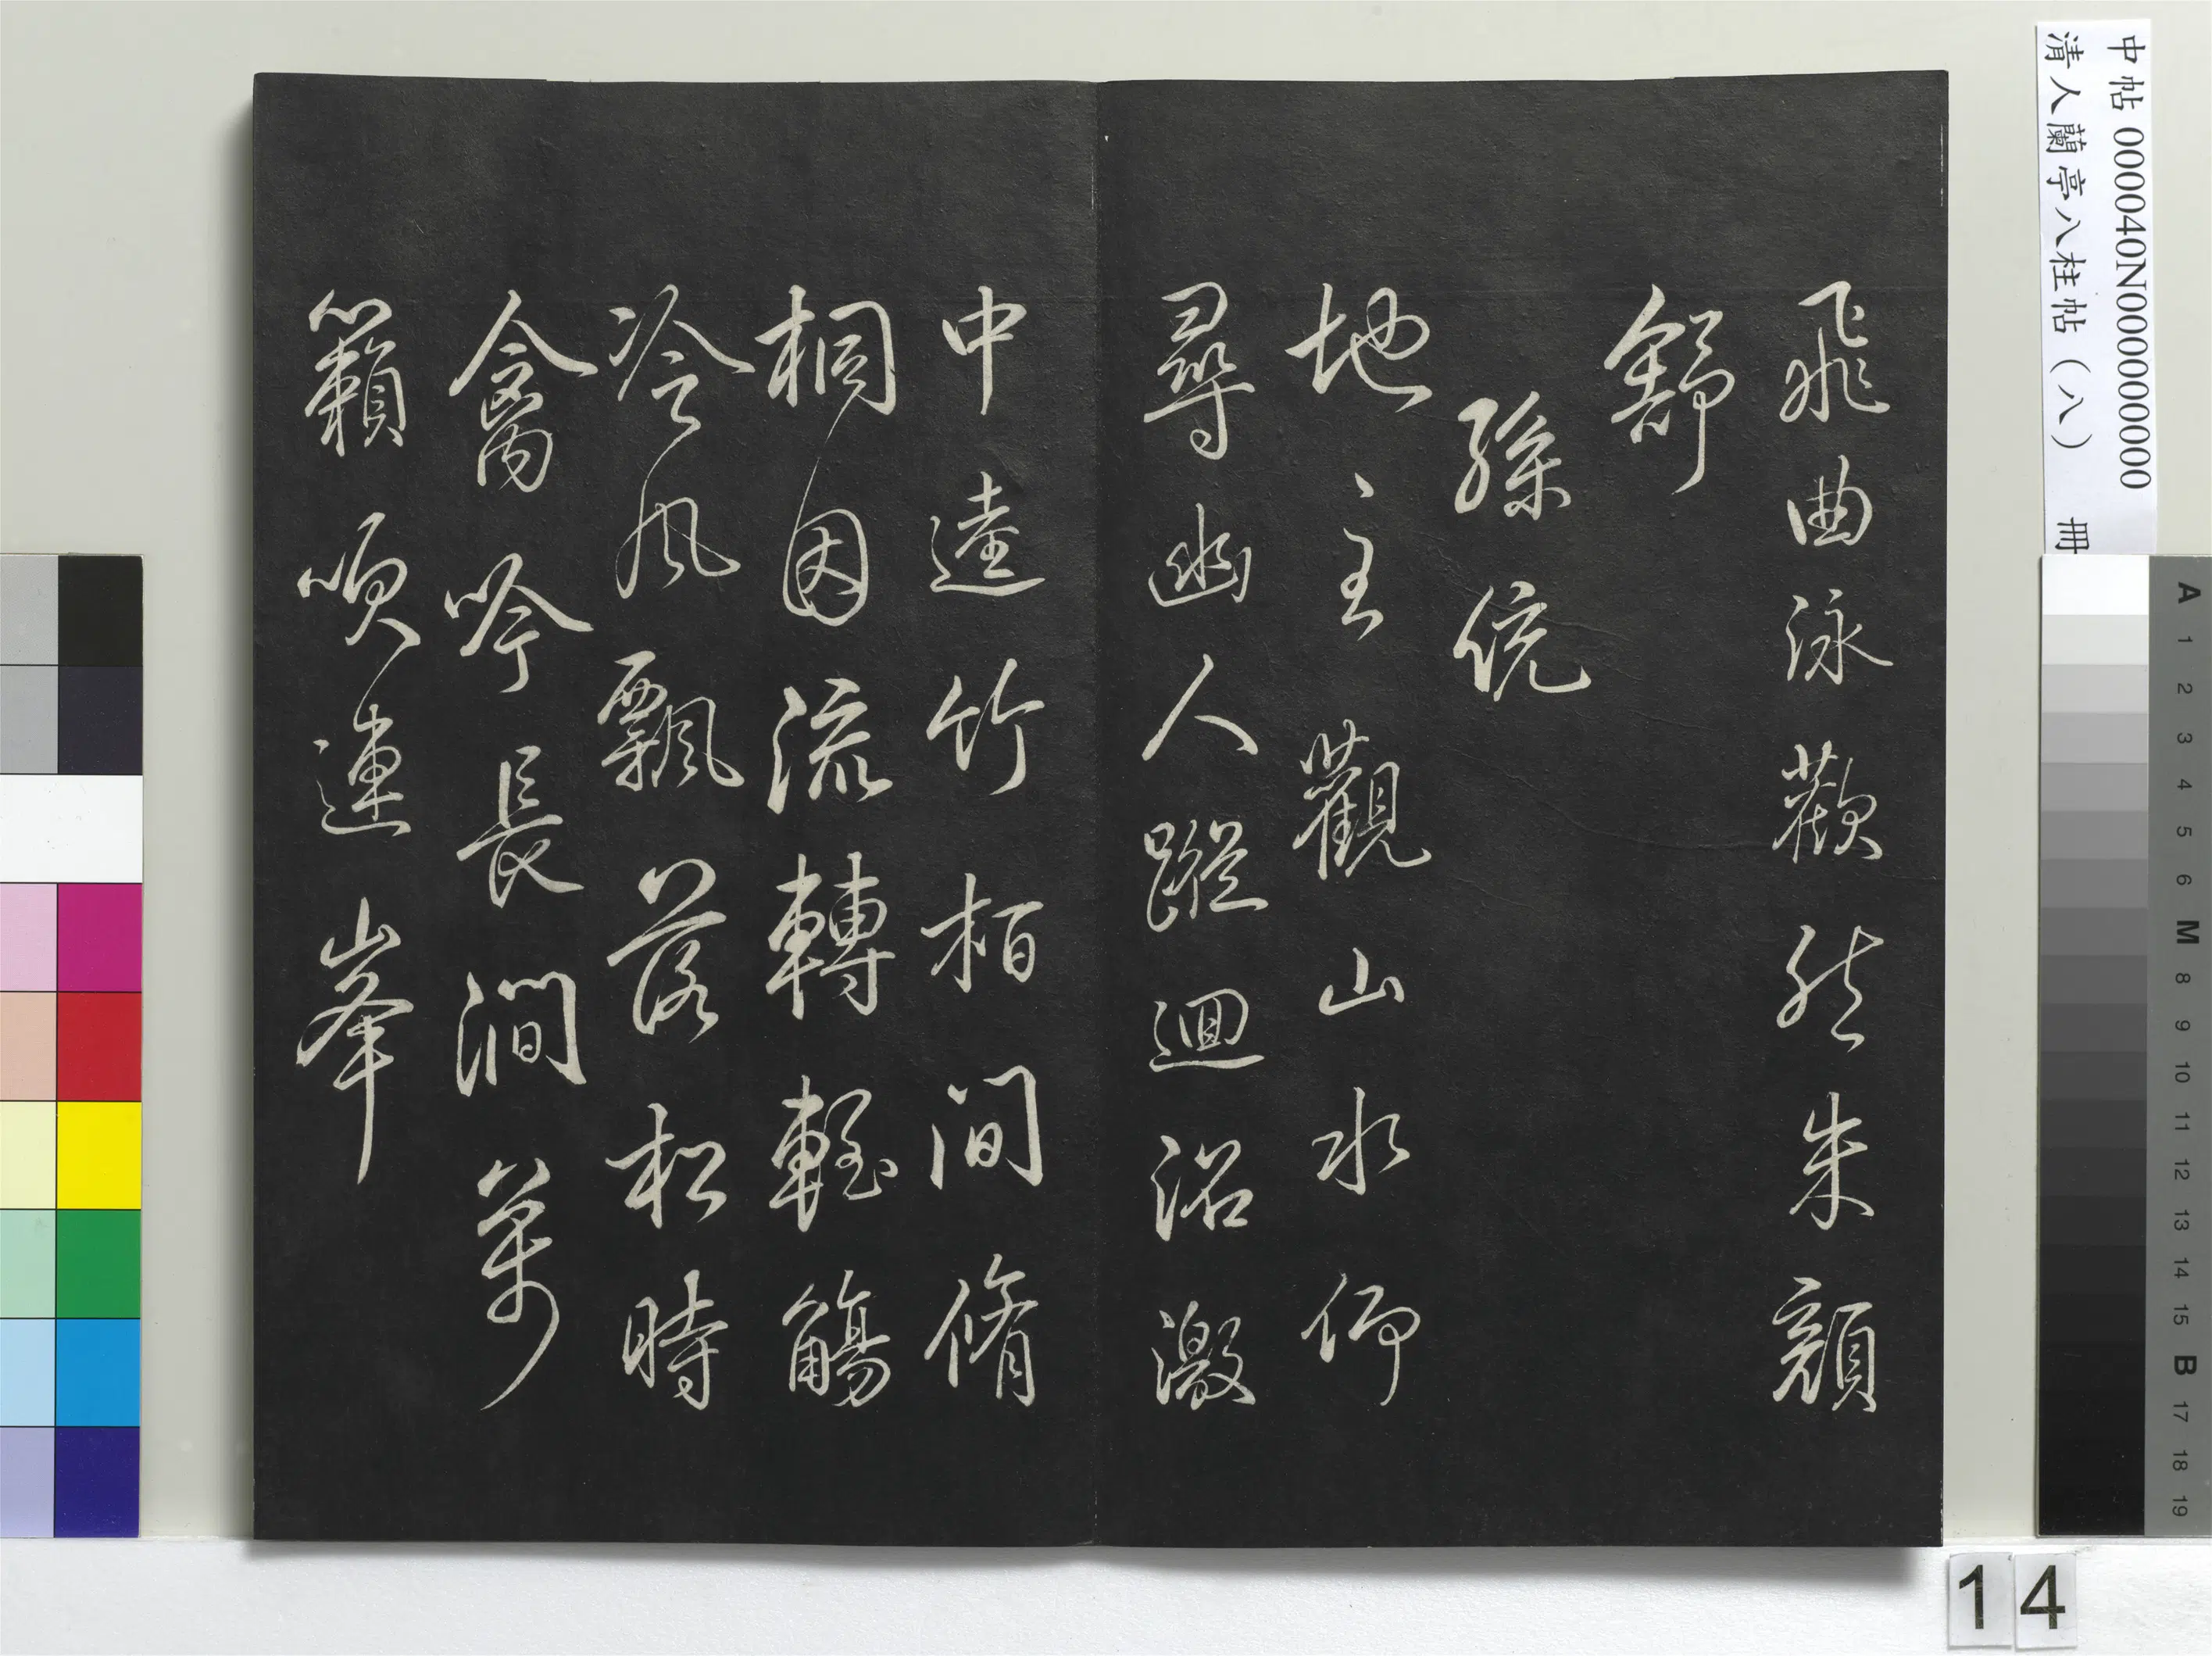 飛曲泳歡然朱顏
舒
孫統
地主觀山水仰
尋幽人蹤迴沼激
中逵竹柏間脩
桐因流轉輕觴
冷風飄落松時
禽吟長澗萬
籟吹連峯
中帖 000040N000000000
清人蘭亭八柱帖(八) 冊
A
1
2
3
4
5
6
M
8
9
10
11
12
13
14
15
B
17
18
19
14